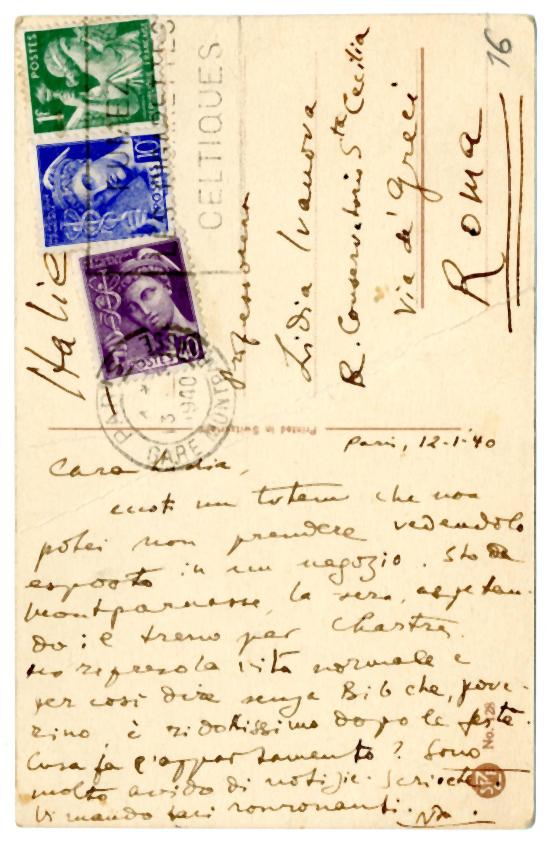 16
POSTES
1F
10
POSTES
POSTES
40
CELTIQUES
1940
GARE MONTP
Italie
Lidia Ivanova
R. Conservatorio Sta Cecilia
Via de' Greci
Roma
Printed in Switzerland
Paris, 12-1-40
Cara Lidia,
un totem che non
potei non prendere vedendolo
esposto in un negozio. Sto a
Montparnasse, la sera, aspetan-
do il treno per Chartres.
Ho ripreso la vita normale e
per così dire senza Bibche, pove-
rino è ridottissimo dopo le feste.
Cosa fa l'appartamento? Sono
molto avido di notizie. Scrivete!
Vi mando baci ronronanti.